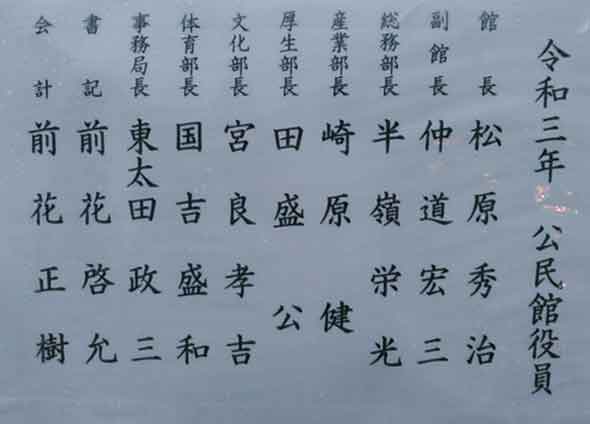 令和三年 公民館役員
館長 松原秀治
副館長 仲道宏三
総務部長 半嶺栄光
産業部長 崎原健
厚生部長 田盛公
文化部長 宮良孝吉
体育部長 国吉盛和
事務局長 東太田政三
書記 前花啓允
会計 前花正樹